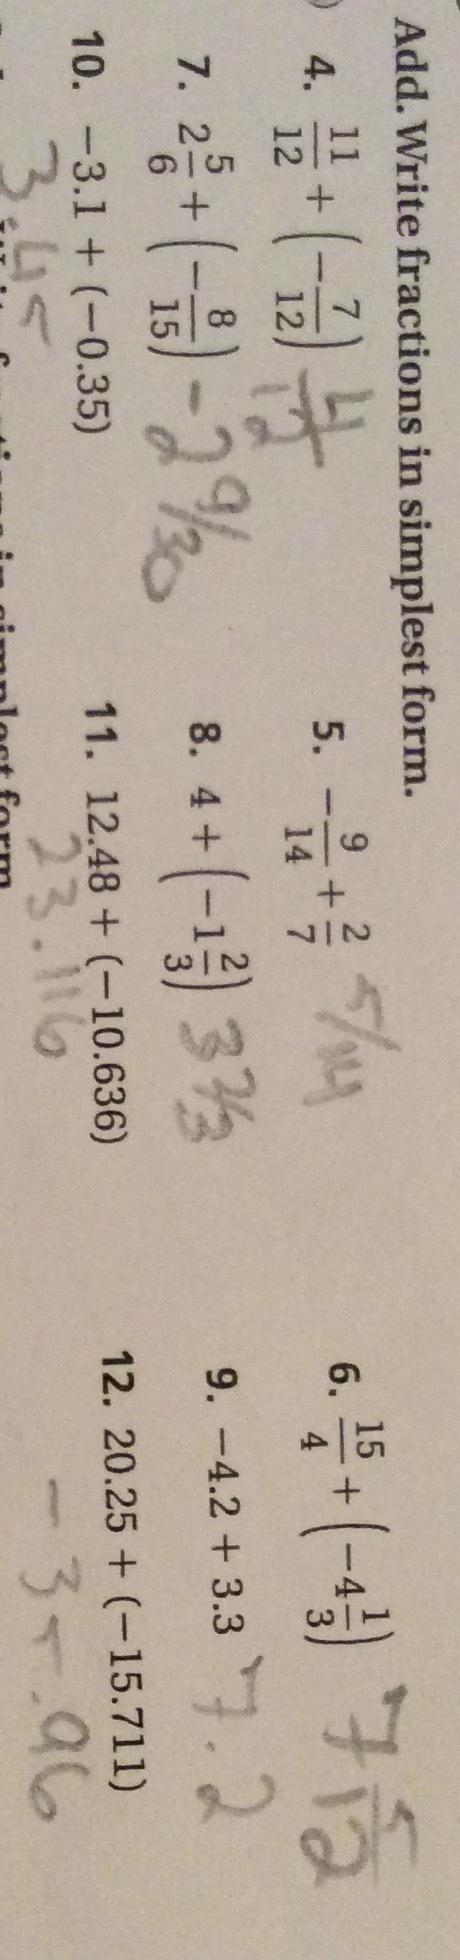 Add. Write fractions in simplest form.
4. 11/12 + (-7/12) 4/12
5. -9/14 + 2/7 5/14
6. 15/4 + (-4 1/3) 7 5/12
7. 2 5/6 + (-8/15) -2 9/30
8. 4 + (-1 2/3) 3 2/3
9. -4.2 + 3.3 7.2
10. -3.1 + (-0.35)
3.45
11. 12.48 + (-10.636)
23.116
12. 20.25 + (-15.711)
-35.96